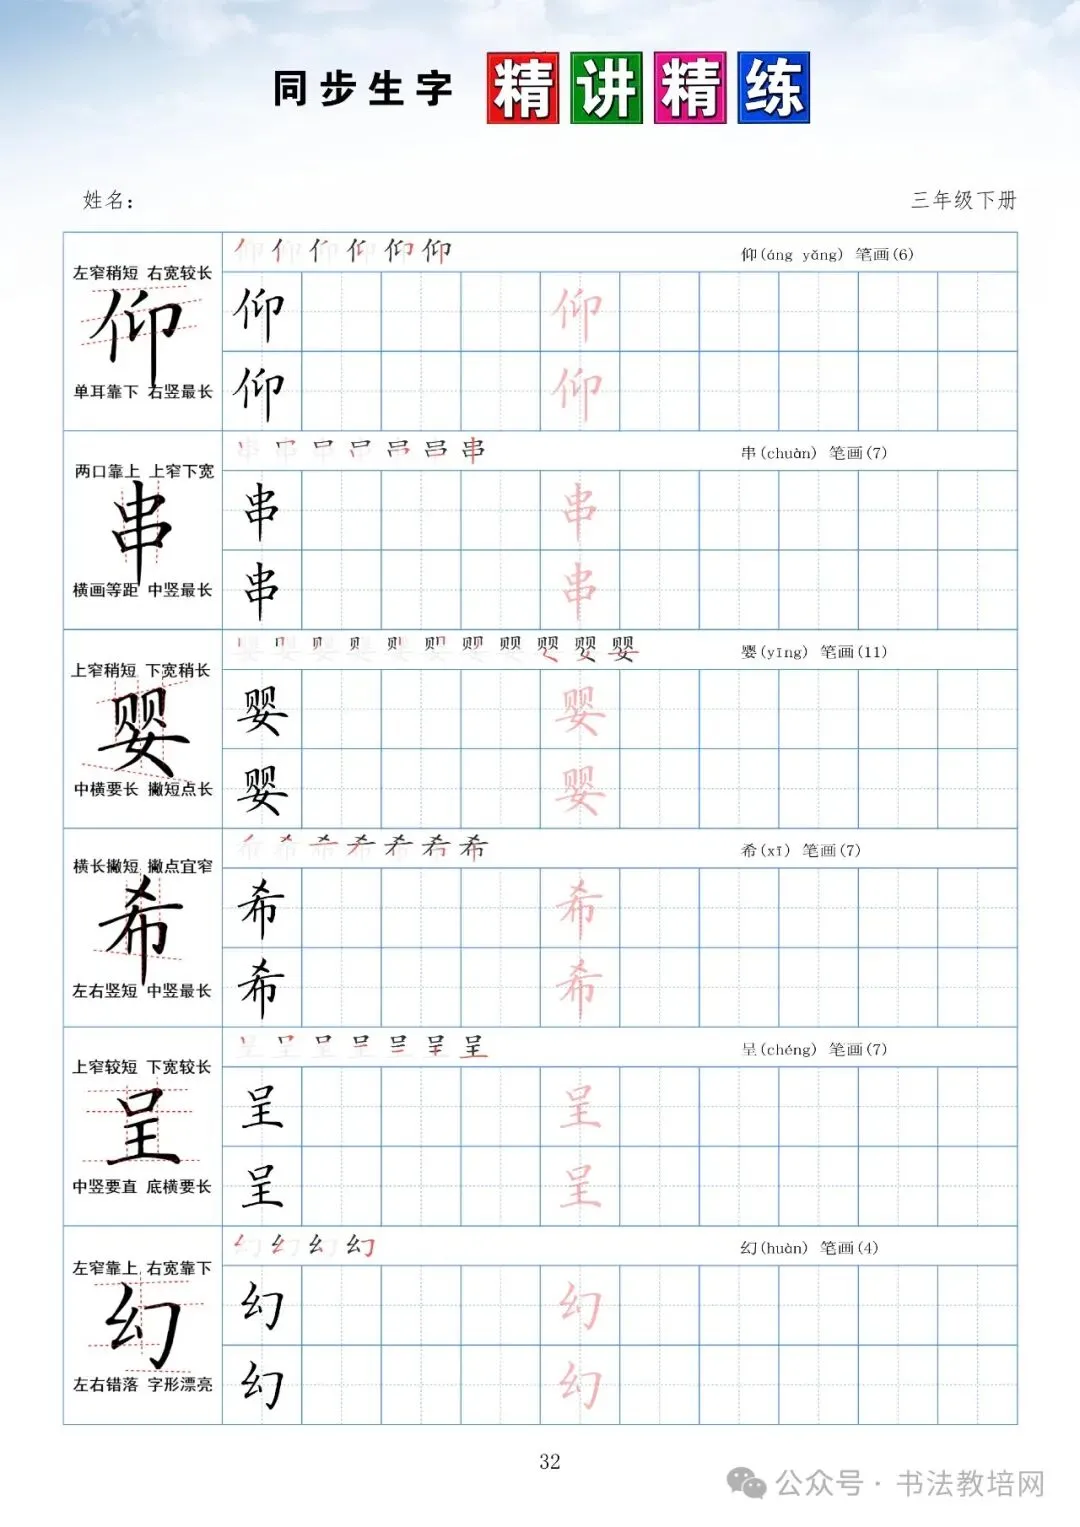 同步生字 精讲精练
姓名：
三年级下册
左窄稍短 右宽较长
仰
单耳靠下 右竖最长
仰(áng yǎng) 笔画(6)
仰 仰
仰 仰
两口靠上 上窄下宽
串
横画等距 中竖最长
串(chuàn) 笔画(7)
串 串
串 串
上窄稍短 下宽稍长
婴
中横要长 撇短点长
婴(yīng) 笔画(11)
婴 婴
婴 婴
横长撇短 撇点宜窄
希
左右竖短 中竖最长
希(xī) 笔画(7)
希 希
希 希
上窄较短 下宽较长
呈
中竖要直 底横要长
呈(chéng) 笔画(7)
呈 呈
呈 呈
左窄靠上 右宽靠下
幻
左右错落 字形漂亮
幻(huàn) 笔画(4)
幻 幻
幻 幻
32
公众号·书法教培网